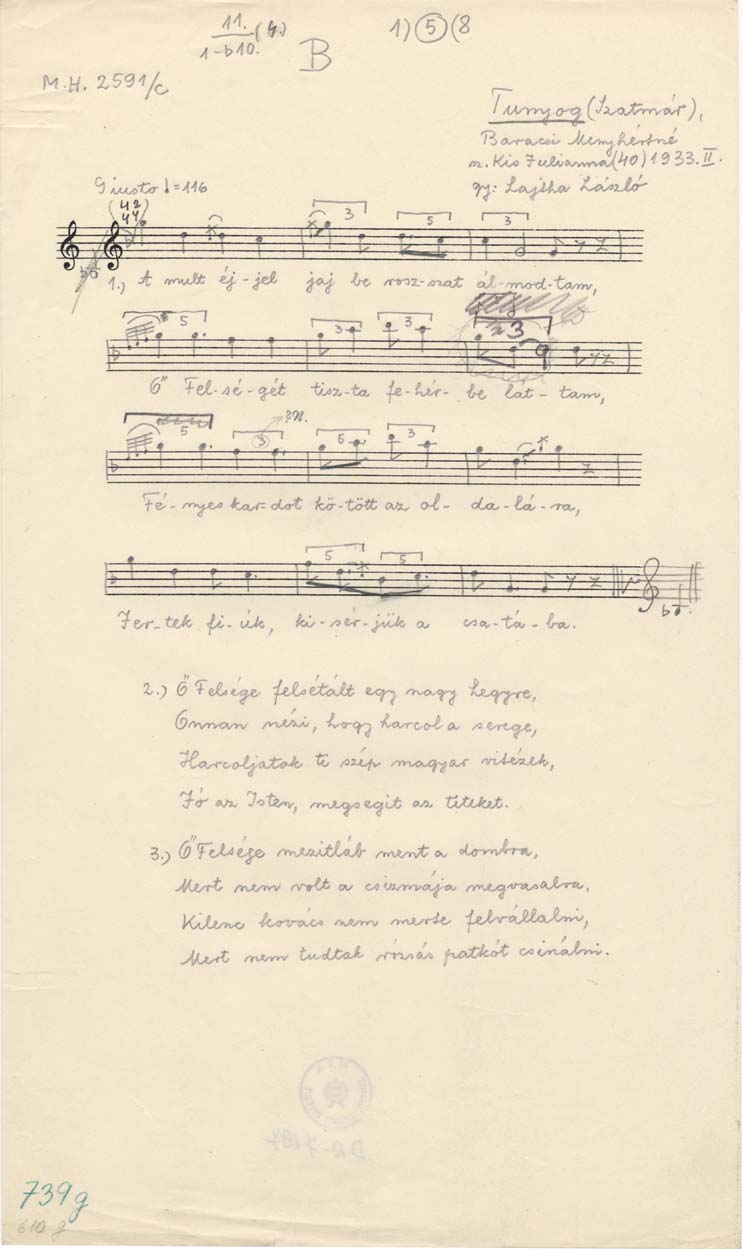 11.
1-b10. (4.)
B
1) 5 (8
M.H. 2591/c
Tunyog (Szatmár),
Baracsi Menyhértné
sz. Kis Julianna (40) 1933. II.
gy: Lajtha László
Giusto ♩=116
1.) A mult éj-jel jaj be rosz-szat ál-mod-tam,
Ő Fel-sé-gét tisz-ta fe-hér-be lat-tam,
Fé-nyes kar-dot kö-tött az ol-da-lá-ra,
Jer-tek fi-úk, ki-sér-jük a csa-tá-ba.
2.) Ő Felsége felsétált egy nagy hegyre,
Onnan nézi, hogy harcol a serege,
Harcoljatok ti szép magyar vitézek,
Jó az Isten, megsegit az titeket.
3.) Ő Felsége mezitláb ment a dombra,
Mert nem volt a csizmája megvasalva,
Kilenc kovács nem merte felvállalni,
Mert nem tudtak rózsás patkót csinálni.
739g
610 g